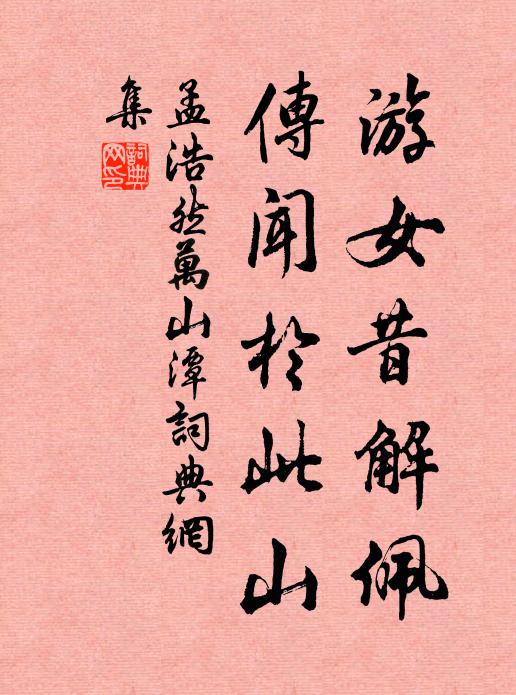 游女昔解佩
傳聞於此山
孟浩然萬山潭詞典網
集
詞典網印